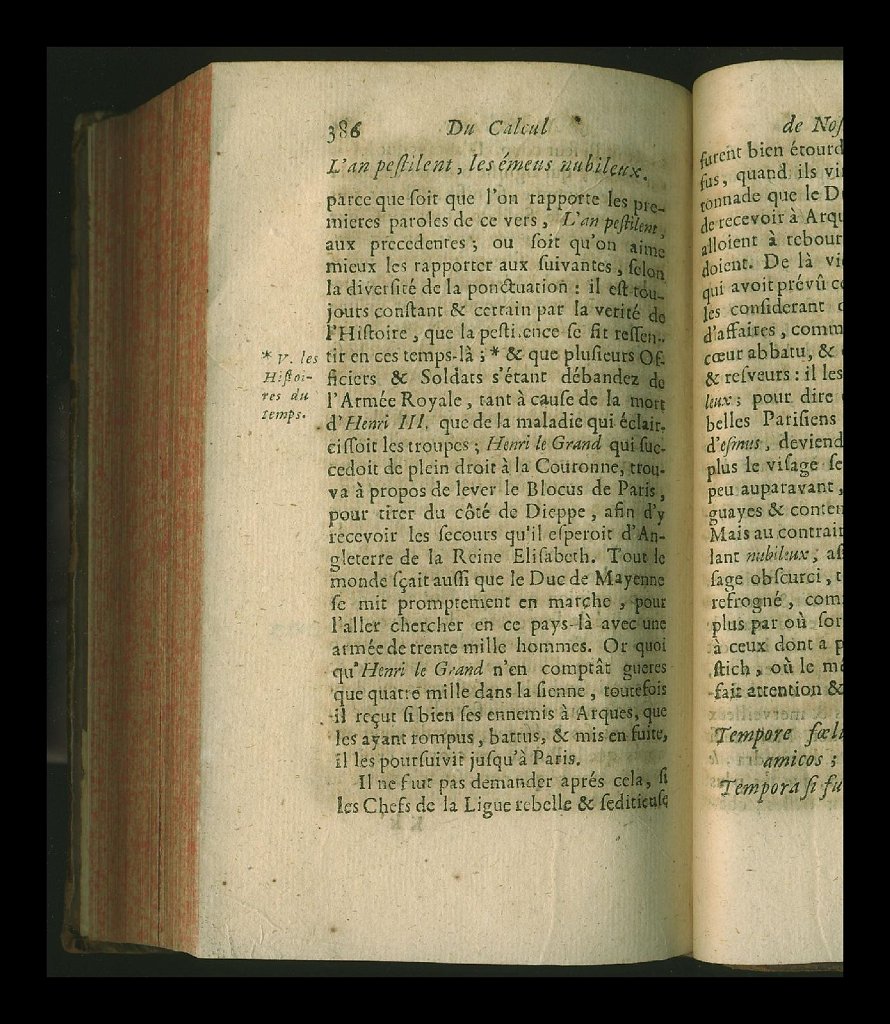 386 Du Calcul
L'an peſtilent, les émeus nubileux.
parce que ſoit que l'on rapporte les pre-
mieres paroles de ce vers, L'an peſtilent,
aux precedentes; ou ſoit qu'on aime
mieux les rapporter aux ſuivantes, ſelon
la diverſité de la ponctuation: il eſt tou-
jours conſtant & certain par la verité de
l'Hiſtoire, que la peſtilence ſe fit reſſen-
tir en ces temps-là; * & que pluſieurs Of-
ficiers & Soldats s'étant débandez de
l'Armée Royale, tant à cauſe de la mort
d'Henri III. que de la maladie qui éclair-
ciſſoit les troupes; Henri le Grand qui ſuc-
cedoit de plein droit à la Couronne, trou-
va à propos de lever le Blocus de Paris,
pour tirer du côté de Dieppe, afin d'y
recevoir les ſecours qu'il eſperoit d'An-
gleterre de la Reine Eliſabeth. Tout le
monde ſçait auſſi que le Duc de Mayenne
ſe mit promptement en marche, pour
l'aller chercher en ce pays-là avec une
armée de trente mille hommes. Or quoi
qu'Henri le Grand n'en comptât gueres
que quatre mille dans la ſienne, toutefois
il reçut ſi bien ſes ennemis à Arques, que
les ayant rompus, battus, & mis en fuite,
il les pourſuivit juſqu'à Paris.
Il ne faut pas demander aprés cela, ſi
les Chefs de la Ligue rebelle & ſeditieuſe
* V. les
Hiſtoi-
res du
temps.
de Noſ
furent bien étourd
fus, quand ils vi
tonnade que le D
de recevoir à Arqu
alloient à rebour
doient. De là vi
qui avoit prévû c
les conſiderant
d'affaires, comm
cœur abbatu, &
& reſveurs: il les
leux; pour dire
belles Pariſiens
d'eſmus, deviend
plus le viſage ſe
peu auparavant,
guayes & conten
Mais au contrair
lant nubileux, aſ
ſage obſcurci, t
refrogné, com
plus par où ſor
à ceux dont a p
ſtich, où le me
fait attention &
Tempore fœli
amicos;
Tempora ſi fu